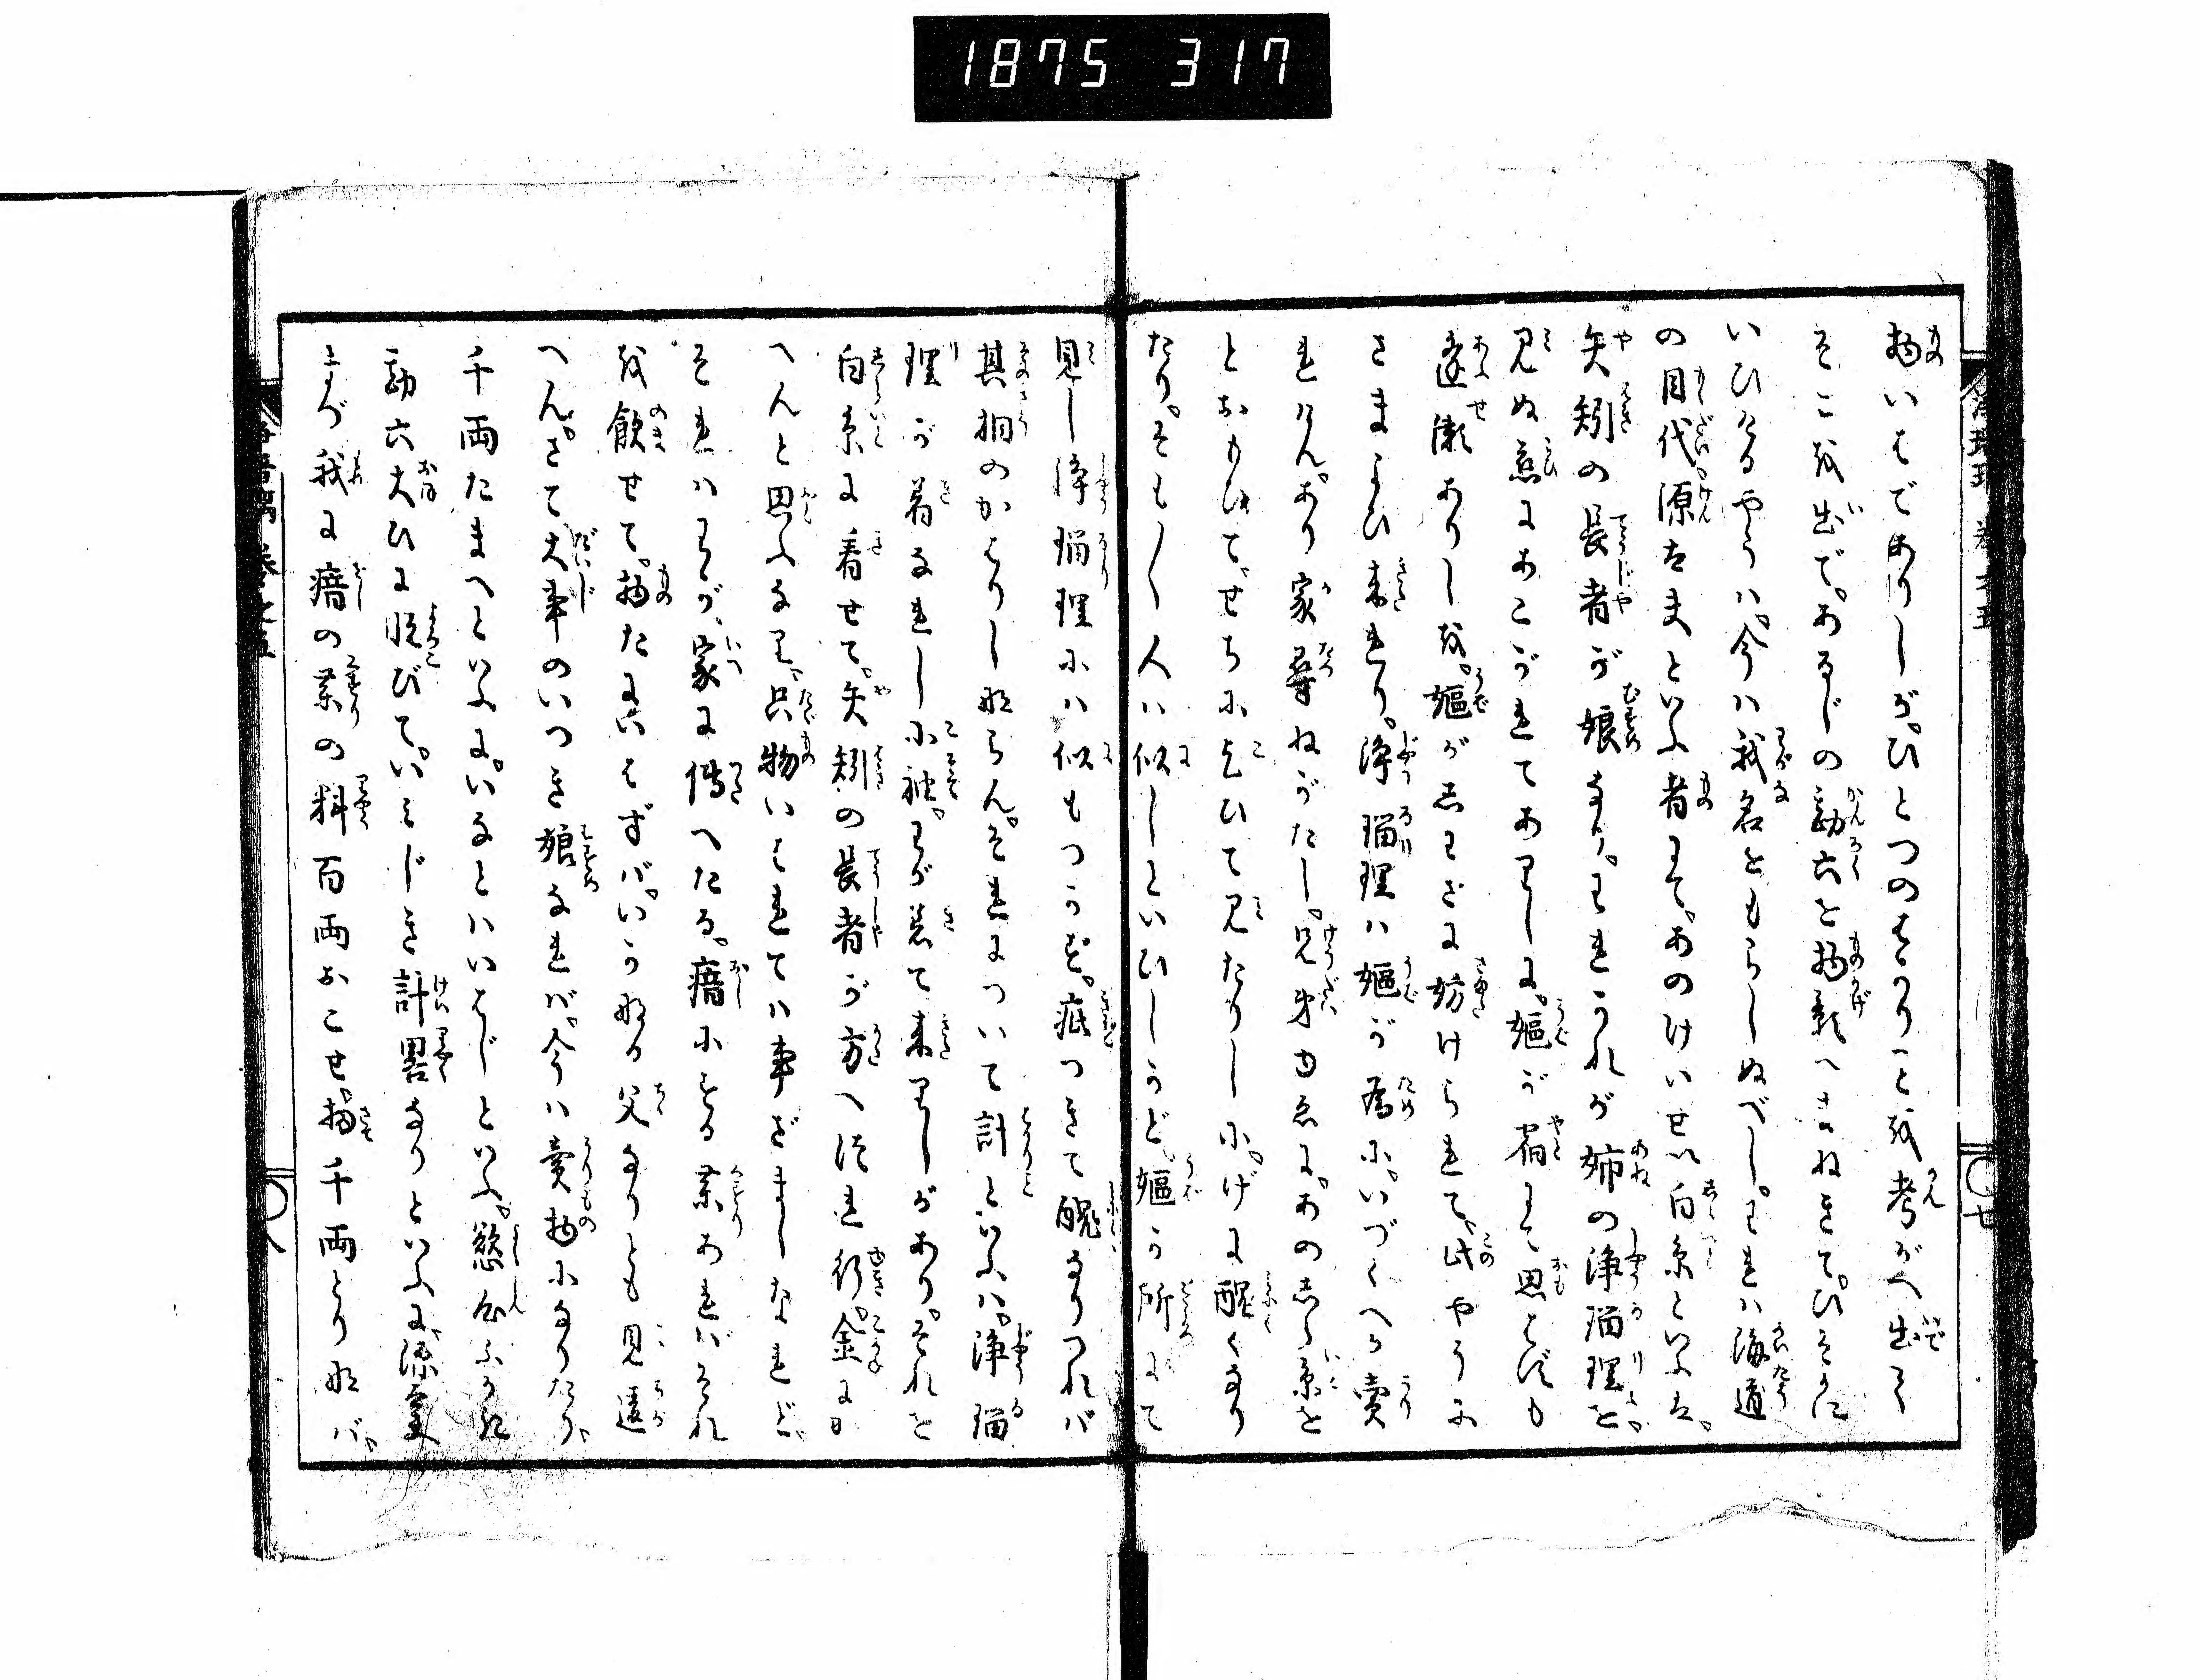 1875 317
物いはでありしが。ひとつのはかりことを考がへ出て
そこを出で。あるじの勘六を物影へまねきて。ひそかに
いひけるやうハ。今ハ我名をもらしぬべし。われハ海道
の目代。源太夫といふ者にて。あのけいせい白糸といふは。
矢矧の長者が娘なり。われかれが姉の浄瑠理を。
見ぬ恋にあこがれてありしに。嫗が宿にて思はずも
逢瀬ありしを。嫗がわざに妨けられて。此やうに
さまよひ来れり。浄瑠理ハ嫗が為に。いづくへか売
れけん。あり家尋ねがたし。兄弟ゆゑに。あのしら糸を
とおもひて。せちにこひて見たりしに。げに醜くなり
たり。そも〳〵人ハ似しといひしかど。嫗が所にて
見し浄瑠理にハ似もつかず。疵つきて醜なりつれバ
其相のかはりしならん。それについて計といふハ。浄瑠
理が着なれし小袖。わが着て来りしがあり。それを
白糸に着せて。矢矧の長者が方へ伴れ行。金に
かへんと思ふなり。只物いはれてハ事ざましなれど。
それハわが家に伝へたる。瘖にする薬あれバ。それ
を飲せて。物だにいはずバ。いかなる父なりとも見違
へん。さて大事のいつき娘なれバ。今ハ売物になりたり。
千両たまへといふに。いなとハいはじといふ。慾心ふかき
勘六大ひに悦びて。いみじき計畧なりといふに。源太夫
まづ我に瘖の薬の料百両おこせ。扨千両とりなバ。